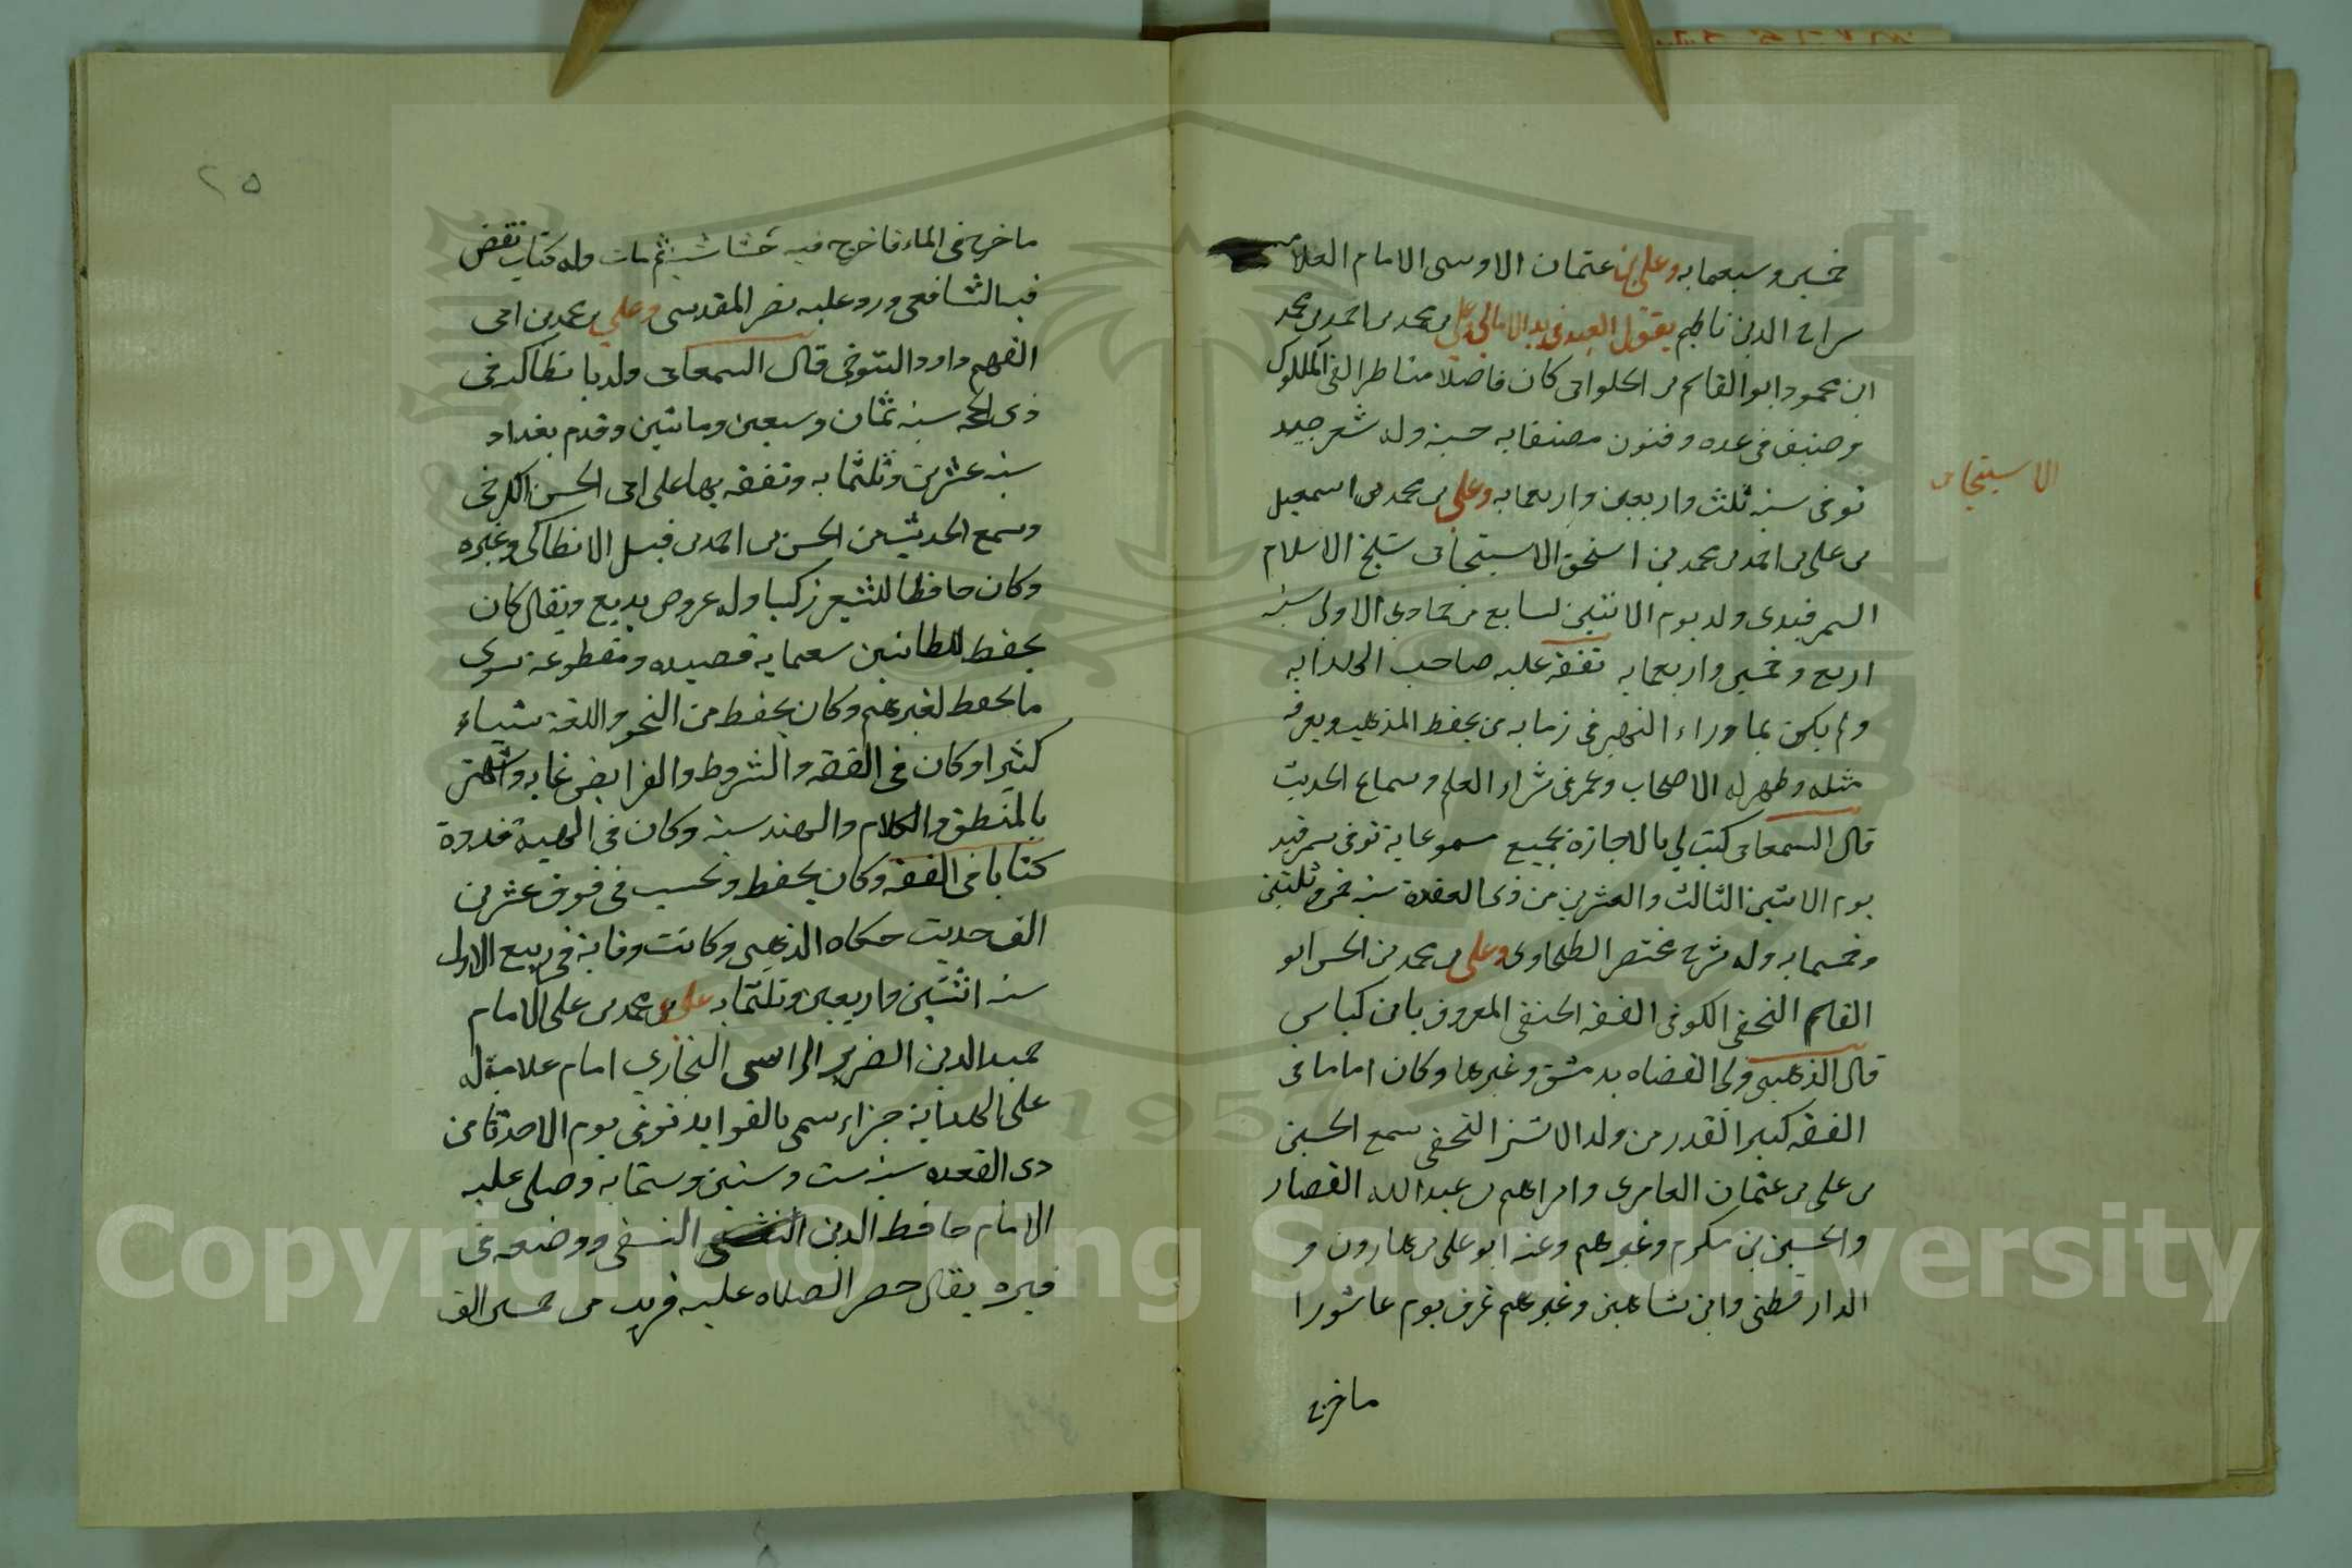 خمسين وسبعمايه وعلى بن عتمان الاوسى الامام العلامه
سراج الدين ناظم يقول العبد في بدا الامالى وعلى بن محمد بن احمد بن محمد
ابن محمود ابو القاسم بن الحلوانى كان فاضلا مناظرا لقى الملوك
وصنف فى عده وفنون مصنفاته حسنه وله شعر جيد
توفى سنه ثلث واربعين واربعمايه وعلى بن محمد بن اسمعيل
بن على بن احمد بن محمد بن اسحق الاسبيجابى شيخ الاسلام
السمرقندى ولد يوم الاثنين لسابع من جمادى الاولى سنه
اربع وخمسين واربعمايه تفقه عليه صاحب الهدايه
ولم يكن بما وراء النهر فى زمانه من يحفظ المذهب ويعرفه
مثله وظهر له الاصحاب وعمر فى شراء العلم وسماع الحديث
قال السمعانى كتب لي بالاجازة بجميع مسموعاته توفى بسمرقند
يوم الاثنين الثالث والعشرين من ذى القعدة سنه خمس وثلثين
وخمسمايه وله شرح مختصر الطحاوى وعلى بن محمد بن الحسن ابو
القاسم النخعى الكوفى الفقه الحنفى المعروف بابن كاس
قال الذهبى ولى القضاه بدمشق وغيرها وكان اماما فى
الفقه كبير القدر من ولد الاشتر النخعى سمع الحسين
بن على بن عثمان العامرى وابراهيم بن عبد الله القصار
والحسين بن مكرم وغيرهم وعنه ابو على بن هارون و
الدارقطنى وابن شاهين وغيرهم غرف يوم عاشورا
ماخرج
الاسبيجابى
٢٥
ماخرج فى الماء فاخرج فيه حشاشه ثم مات وله كتاب نقض
فيه الشافعى ورد عليه نصر المقدسى وعلي بن محمد بن ابى
الفهم داود التنوخى قال السمعانى ولد بانطاكيه فى
ذى الحجه سنه ثمان وسبعين وماتين وقدم بغداد
سنه عشرين وثلثمايه وتفقه بها على ابى الحسن الكرخى
وسمع الحديث من الحسن بن احمد بن فيل الانطاكى وغيره
وكان حافظا للشعر زكيا وله عروض بديع ويقال كان
يحفظ للطائيين سبعمايه قصيده ومقطوعة سوى
ما يحفظ لغيرهم وكان يحفظ من النحو واللغة شياء
كثيرا وكان فى الفقه والشروط والفرايض غايه واشتهر
بالمنطق والكلام والهندسه وكان فى الهيئة قدوة
كتابا فى الفقه وكان يحفظ وتحسب فى فوق عشرين
الف حديث حكاه الذهبى وكانت وفاته فى ربيع الاول
سنه اثنتين واربعين وثلثمايه على بن محمد بن على الامام
حميد الدين الضرير الرامسى البخاري امام علامة له
على الهداية جزاء سمى بالفوايد توفى يوم الاحد ثامن
دى القعده سنه ست وستين وستمايه وصلى عليه
الامام حافظ الدين النسفى ووضعه فى
قبره يقال حضر الصلاه عليه قريب من خمسين الف
Copyright © King Saud University
1957